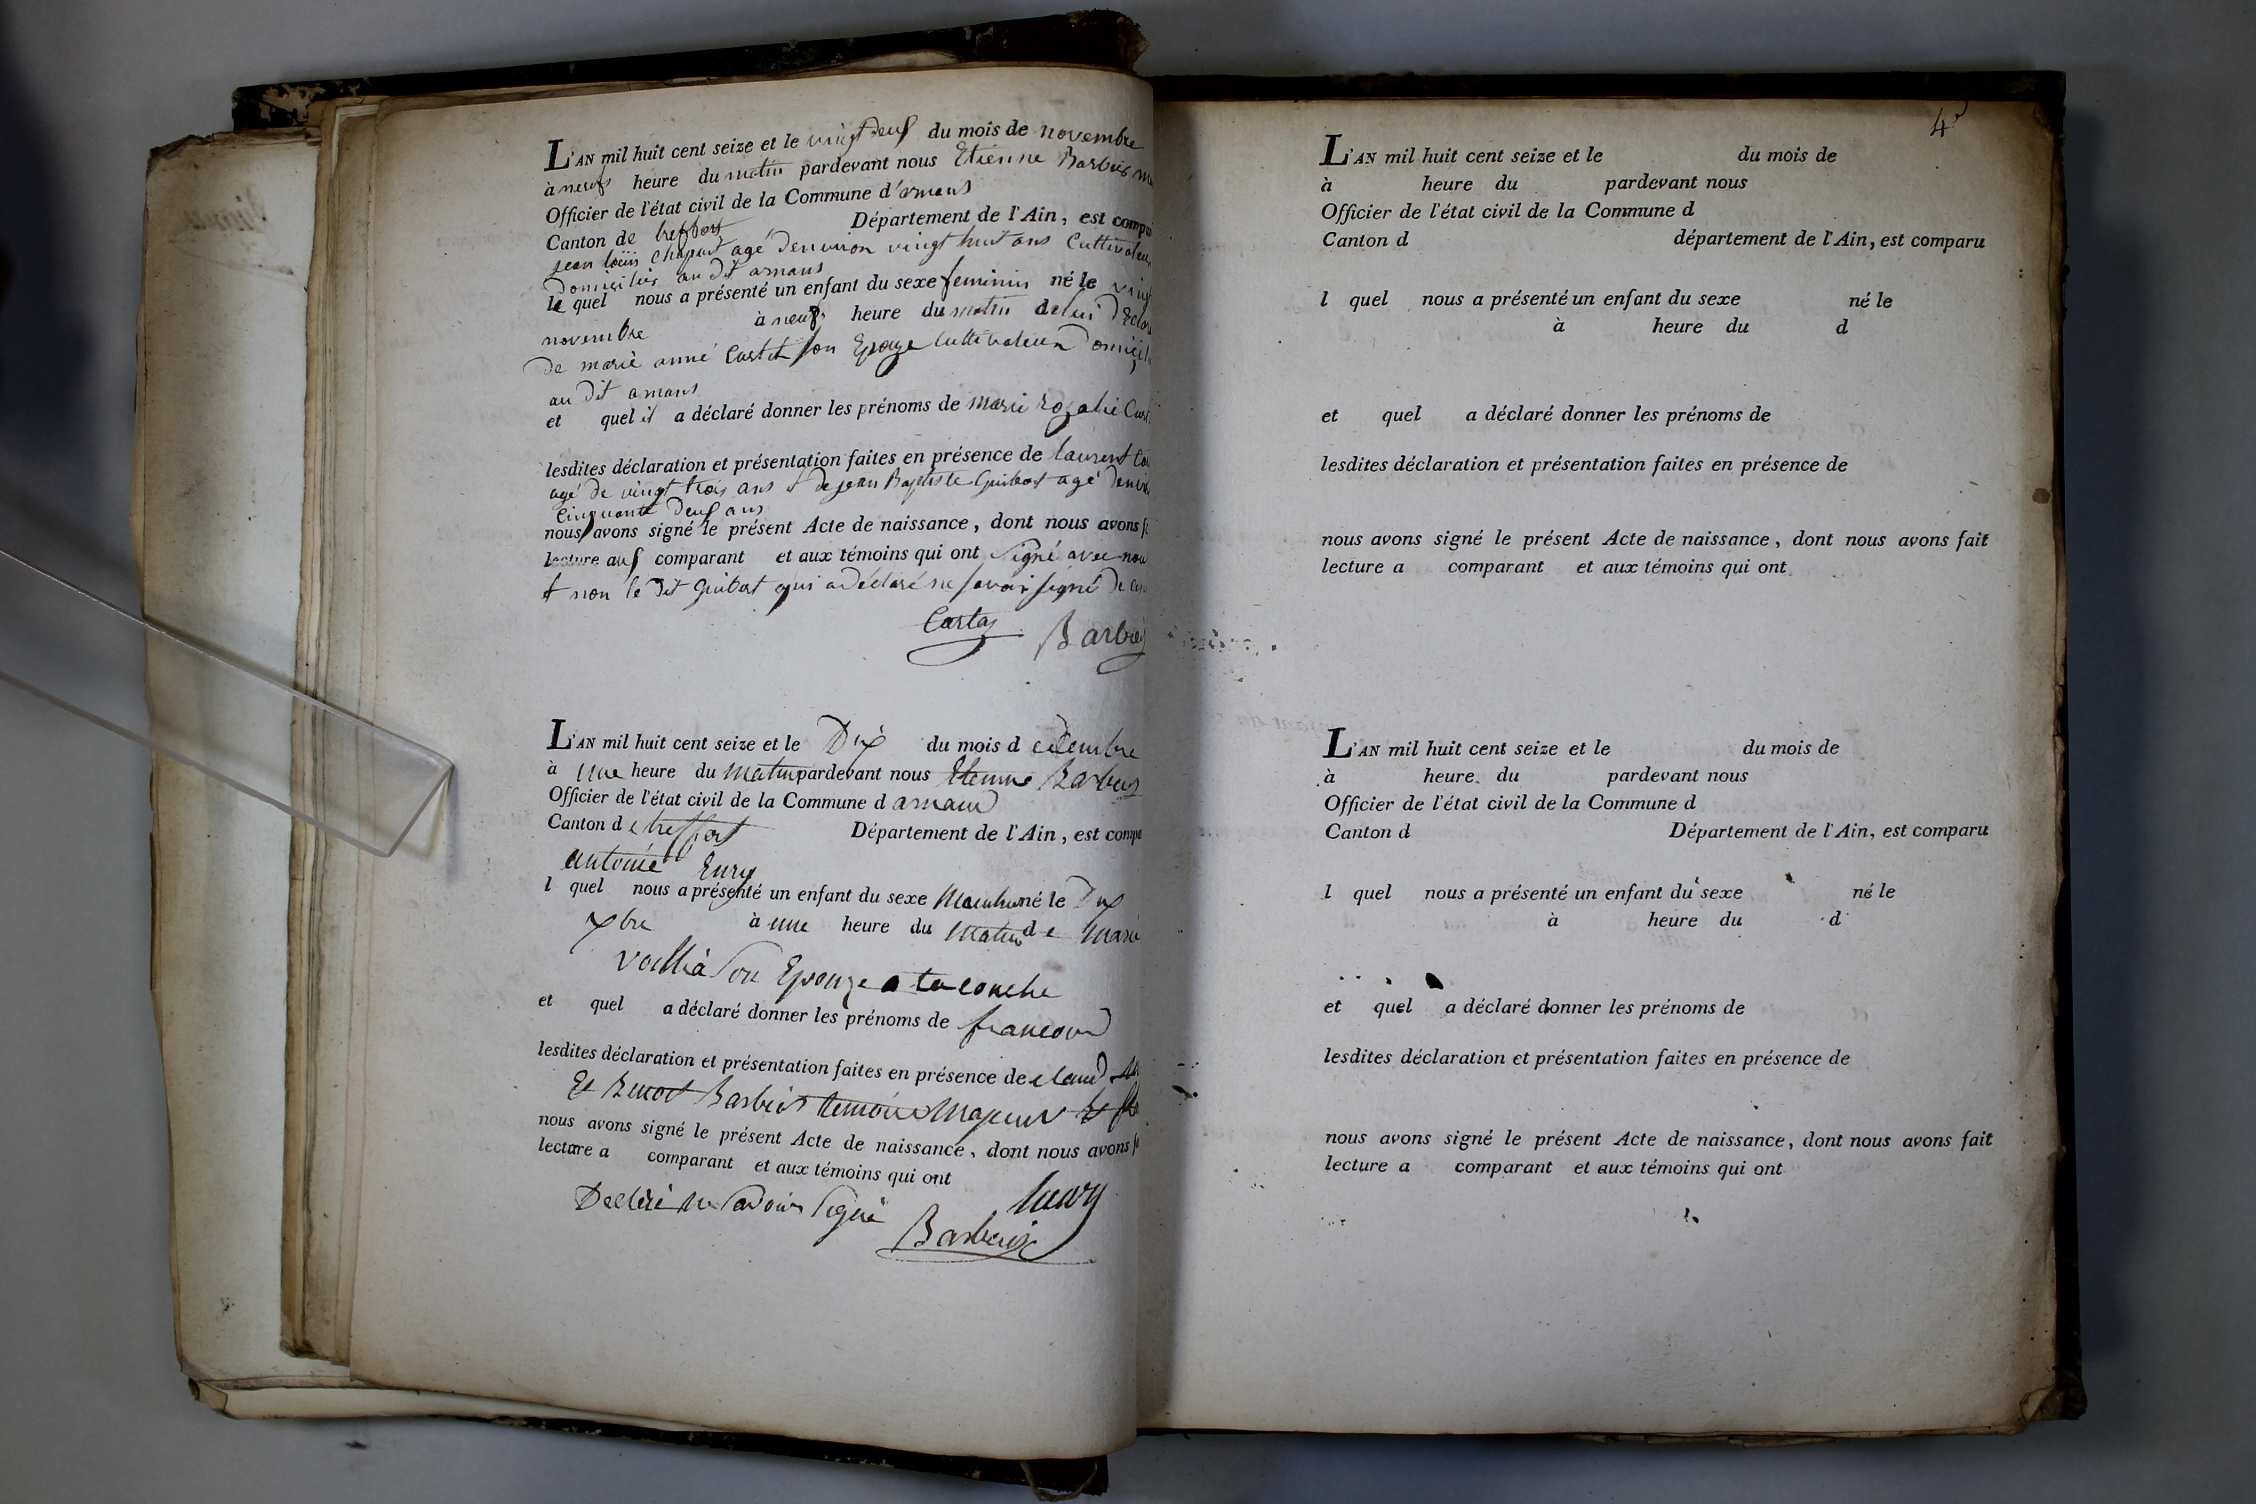 L'AN mil huit cent seize et le vingt deux du mois de novembre
à neuf heure du matin pardevant nous Etienne Barbier
Officier de l'état civil de la Commune d'arnans
Canton de treffort Département de l'Ain, est
jean louis agé denviron vingt huit ans Cultivateur
Domicilié au dit arnans
le quel nous a présenté un enfant du sexe feminin né le
novembre à neuf heure du matin de lui
De marie anne son Epouze Cultivateur
au Dit arnans
et quel il a déclaré donner les prénoms de marie rozalie
lesdites déclaration et présentation faites en présence de laurent
agé de vingt trois ans & de jean Baptiste Guibert agé
Cinquante deux ans
nous avons signé le présent Acte de naissance, dont nous avons
lecture aux comparant et aux témoins qui ont Signé avec nou
& non le dit Guibert qui a Déclaré ne savoir signé De
Barbie
L'AN mil huit cent seize et le Dix du mois d
à une heure du matin pardevant nous Etienne Barbier
Officier de l'état civil de la Commune d arnans
Canton de treffort Département de l'Ain, est
antoine
l quel nous a présenté un enfant du sexe né le Dix
xbre à une heure du matin de Marie
son Epouze
et quel a déclaré donner les prénoms de francois
lesdites déclaration et présentation faites en présence de claud
Et Benoit Barbier
nous avons signé le présent Acte de naissance, dont nous avons
lecture a comparant et aux témoins qui ont
ne savoir signé
Barbier
4
L'AN mil huit cent seize et le du mois de
à heure du pardevant nous
Officier de l'état civil de la Commune d
Canton d département de l'Ain, est comparu
l quel nous a présenté un enfant du sexe né le
à heure du d
et quel a déclaré donner les prénoms de
lesdites déclaration et présentation faites en présence de
nous avons signé le présent Acte de naissance, dont nous avons fait
lecture a comparant et aux témoins qui ont
L'AN mil huit cent seize et le du mois de
à heure du pardevant nous
Officier de l'état civil de la Commune d
Canton d Département de l'Ain, est comparu
l quel nous a présenté un enfant du sexe né le
à heure du d
et quel a déclaré donner les prénoms de
lesdites déclaration et présentation faites en présence de
nous avons signé le présent Acte de naissance, dont nous avons fait
lecture a comparant et aux témoins qui ont